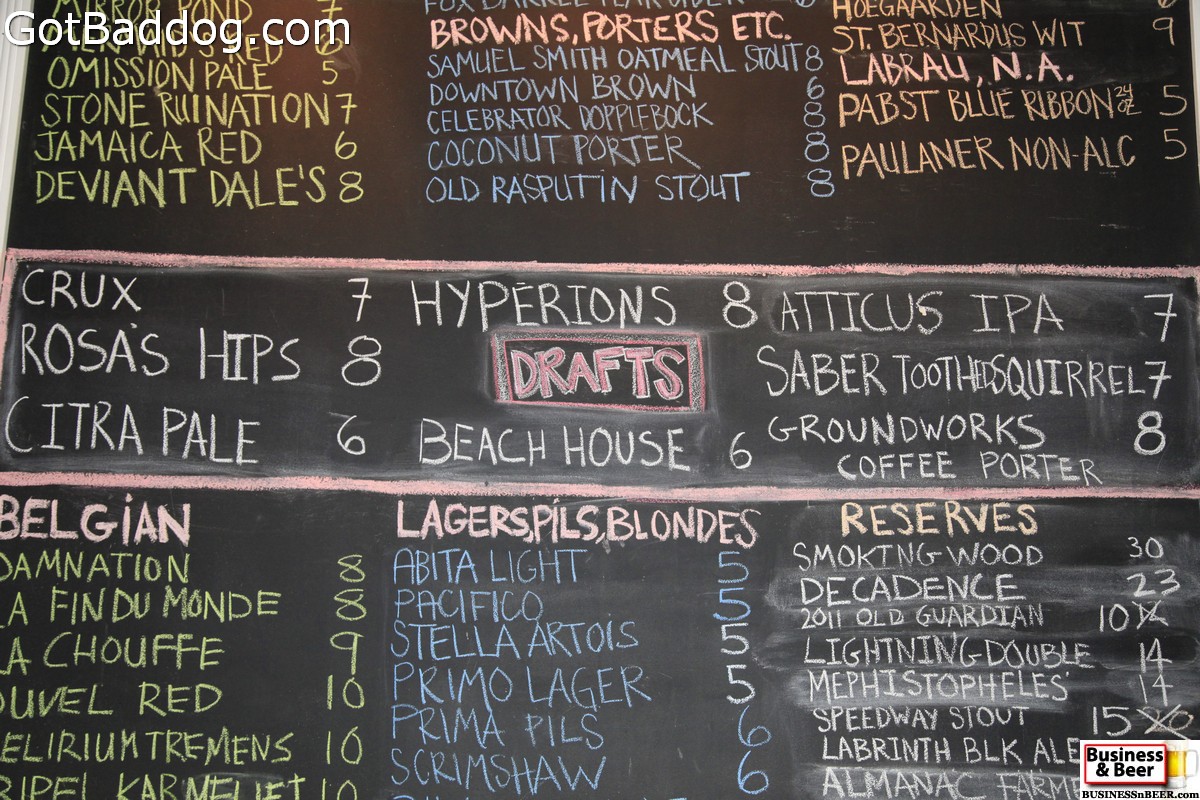 GotBaddog.com
MIRROR POND 7
RED 6
OMISSION PALE 5
STONE RUINATION 7
JAMAICA RED 6
DEVIANT DALE'S 8
BROWNS, PORTERS ETC.
SAMUEL SMITH OATMEAL STOUT 8
DOWNTOWN BROWN 6
CELEBRATOR DOPPLEBOCK 8
COCONUT PORTER 8
OLD RASPUTIN STOUT 8
HOEGAARDEN
ST. BERNARDUS WIT 9
LABRAU, N.A.
PABST BLUE RIBBON 24 OZ 5
PAULANER NON-ALC 5
CRUX 7
ROSA'S HIPS 8
CITRA PALE 6
HYPERIONS 8
DRAFTS
BEACH HOUSE 6
ATTICUS IPA 7
SABER TOOTHED SQUIRREL 7
GROUNDWORKS 8
COFFEE PORTER
BELGIAN
DAMNATION 8
LA FIN DU MONDE 8
LA CHOUFFE 9
DUVEL RED 10
DELIRIUM TREMENS 10
TRIPEL KARMELIET 10
LAGERS, PILS, BLONDES
ABITA LIGHT 5
PACIFICO 5
STELLA ARTOIS 5
PRIMO LAGER 5
PRIMA PILS 6
SCRIMSHAW 6
RESERVES
SMOKING WOOD 30
DECADENCE 23
2011 OLD GUARDIAN 10
LIGHTNING DOUBLE 14
MEPHISTOPHELES' 14
SPEEDWAY STOUT 15 20
LABRINTH BLK ALE
ALMANAC FARM
Business
& Beer
BUSINESSnBEER.com